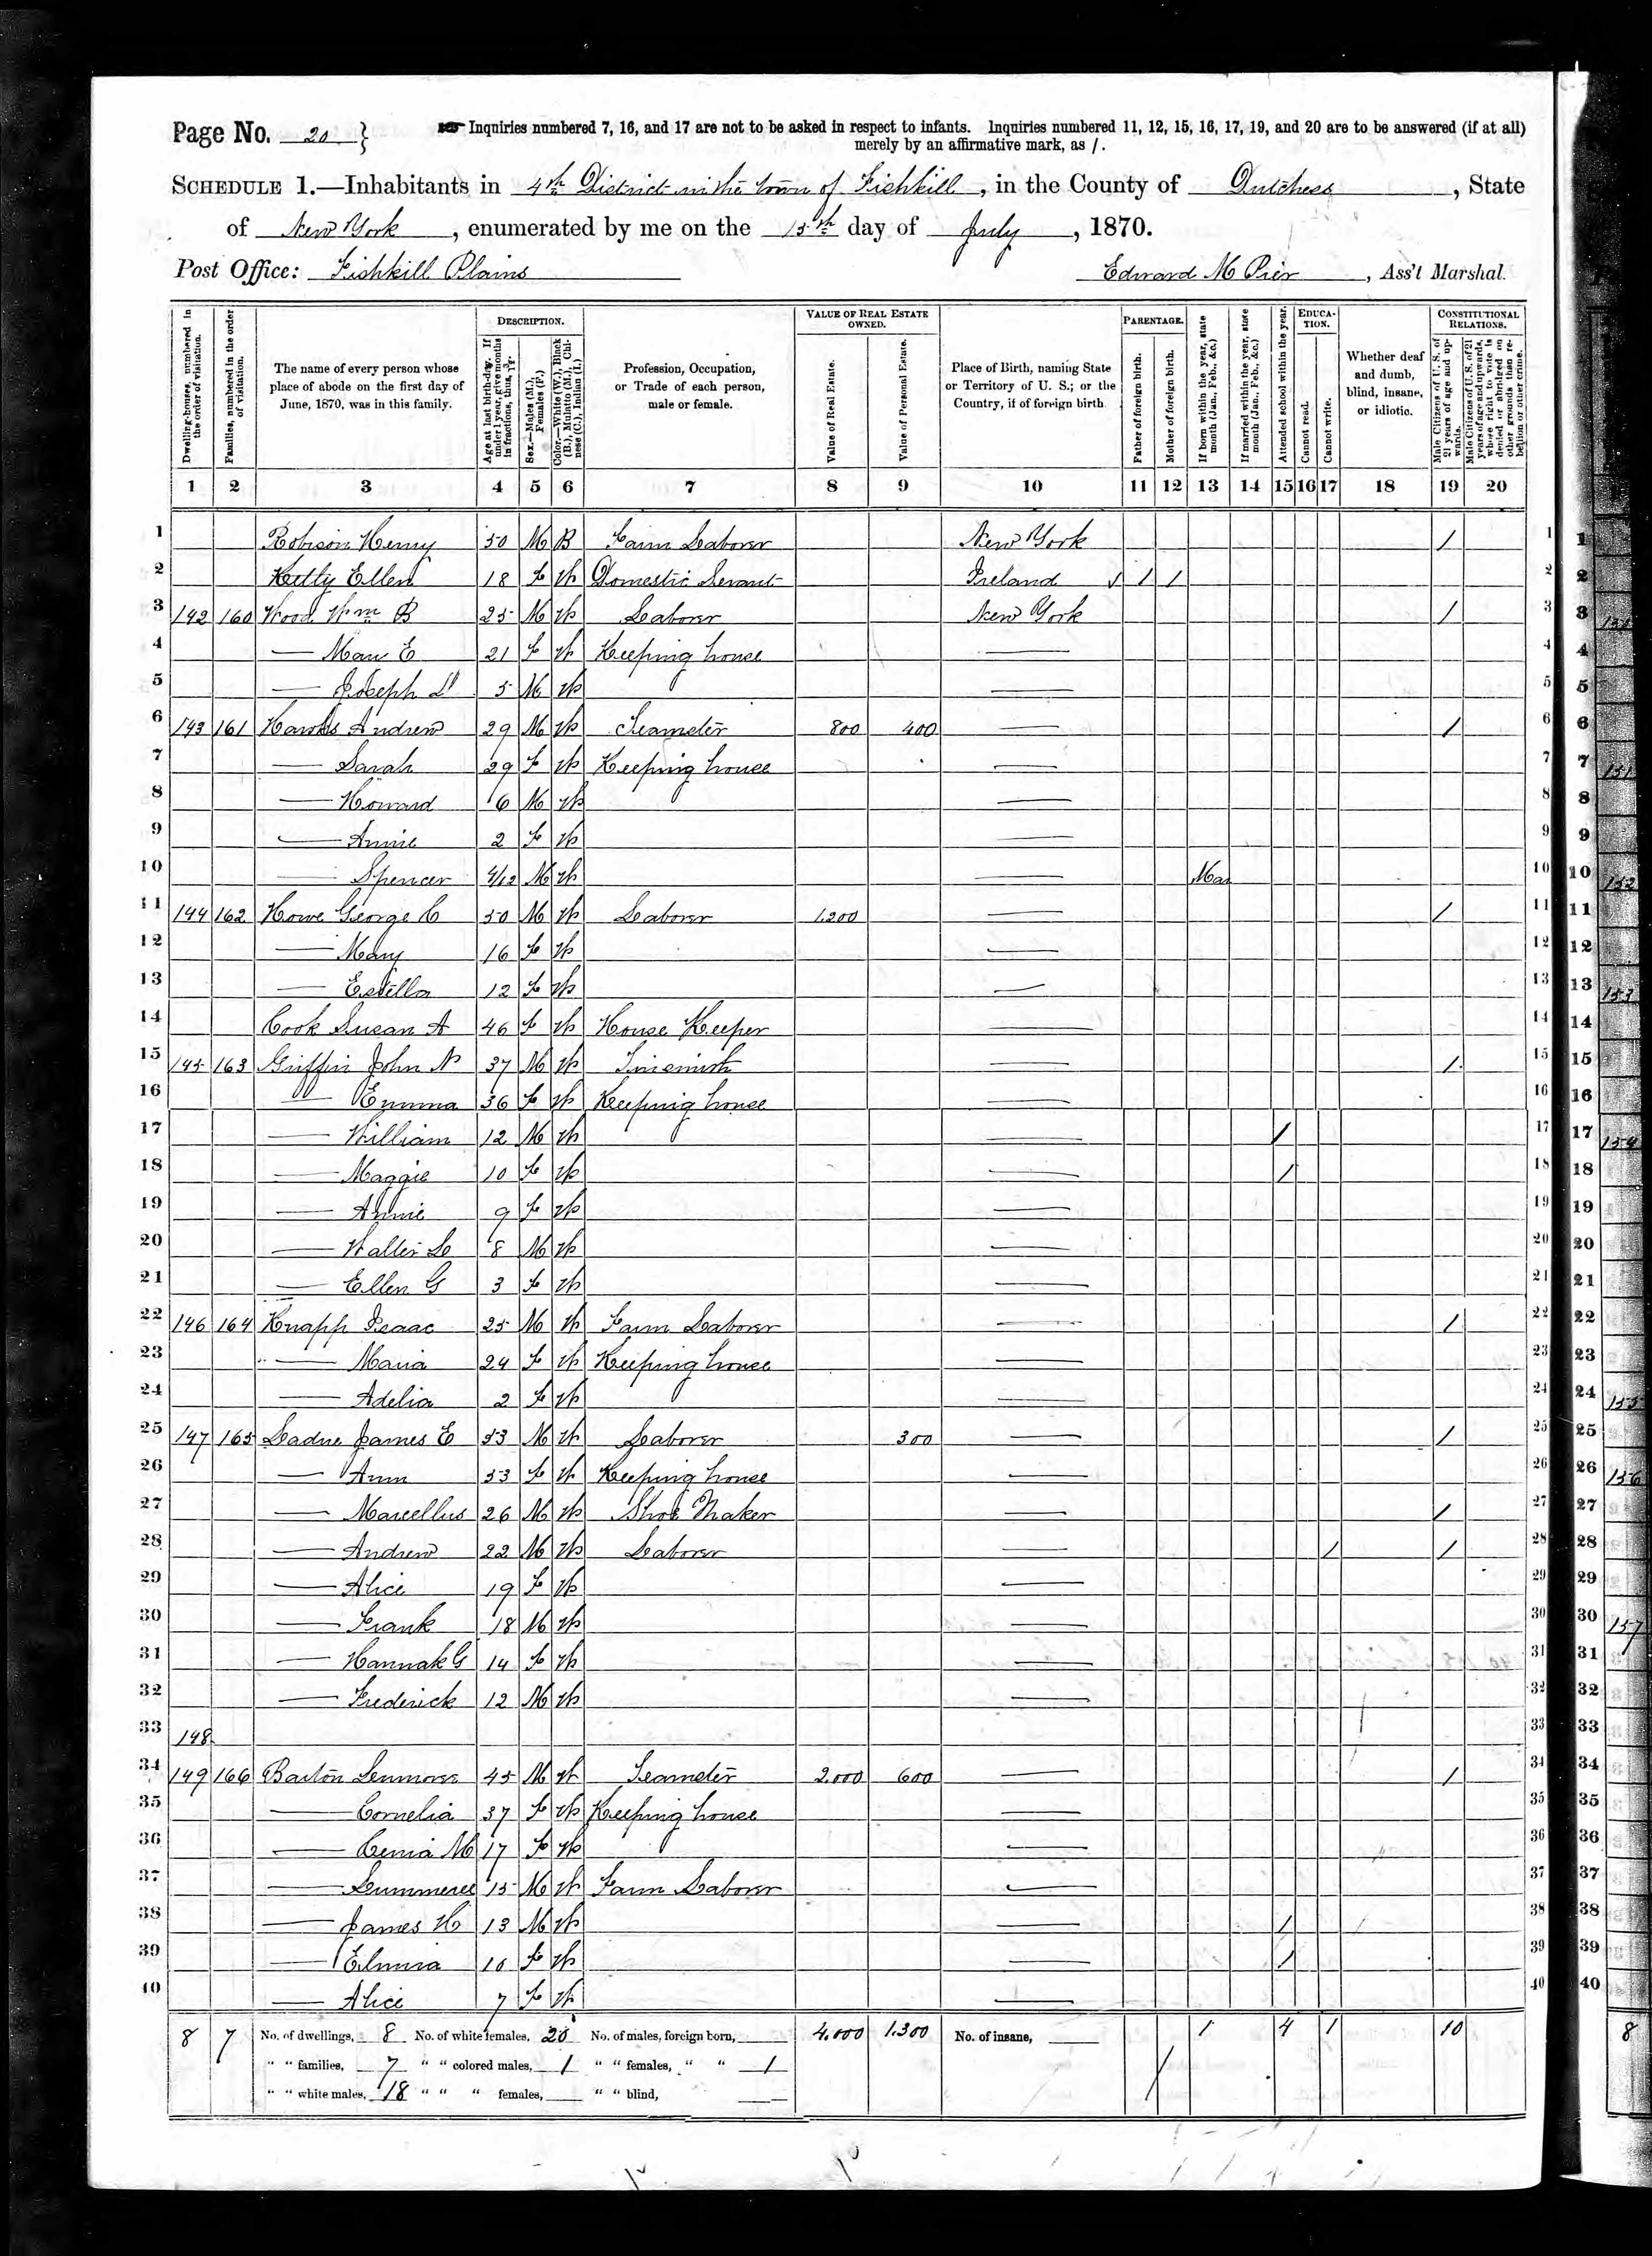 Page No. 20 } Inquiries numbered 7, 16, and 17 are not to be asked in respect to infants. Inquiries numbered 11, 12, 15, 16, 17, 19, and 20 are to be answered (if at all)
merely by an affirmative mark, as /.
SCHEDULE 1.—Inhabitants in 4th District in the town of Fishkill, in the County of Dutchess, State
of New York, enumerated by me on the 15th day of July, 1870.
Post Office: Fishkill Plains Edward M Pier, Ass't Marshal.
Dwelling-houses, numbered in the order of visitation.
Families, numbered in the order of visitation.
The name of every person whose place of abode on the first day of June, 1870, was in this family.
DESCRIPTION.
Age at last birth-day. If under 1 year, give months in fractions, thus,
Sex.—Males (M.), Females (F.)
Color.—White (W.), Black (B.), Mulatto (M.), Chinese (C.), Indian (I.)
Profession, Occupation, or Trade of each person, male or female.
VALUE OF REAL ESTATE OWNED.
Value of Real Estate.
Value of Personal Estate.
Place of Birth, naming State or Territory of U. S.; or the Country, if of foreign birth.
PARENTAGE.
Father of foreign birth.
Mother of foreign birth.
If born within the year, state month (Jan., Feb., &c.)
If married within the year, state month (Jan., Feb., &c.)
Attended school within the year.
EDUCATION.
Cannot read.
Cannot write.
Whether deaf and dumb, blind, insane, or idiotic.
CONSTITUTIONAL RELATIONS.
Male Citizens of U. S. of 21 years of age and upwards.
Male Citizens of U. S. of 21 years of age and upwards, whose right to vote is denied or abridged on other grounds than rebellion or other crime.
1 2 3 4 5 6 7 8 9 10 11 12 13 14 15 16 17 18 19 20
1 Robison Henry 50 M B Farm Laborer New York / 1
2 Kelly Ellen 18 F W Domestic Servant Ireland / / 2
3 142 160 Wood Wm B 25 M W Laborer New York / 3
4 — Mary E 21 F W Keeping house — 4
5 — Joseph 5 M W — 5
6 143 161 Hawks Andrew 29 M W Teamster 800 400 — / 6
7 — Sarah 29 F W Keeping house — 7
8 — Howard 6 M W — 8
9 — Annie 2 F W — 9
10 — Spencer 4/12 M W — Mar 10
11 144 162 Howe George C 50 M W Laborer 1,200 — / 11
12 — Mary 16 F W — 12
13 — Estella 12 F W — 13
14 Cook Susan A 46 F W House Keeper — 14
15 145 163 Griffin John N 37 M W Tinsmith — / 15
16 — Emma 36 F W Keeping house — 16
17 — William 12 M W — / 17
18 — Maggie 10 F W — / 18
19 — Annie 9 F W — 19
20 — Walter L 8 M W — 20
21 — Ellen G 3 F W — 21
22 146 164 Knapp Isaac 25 M W Farm Laborer — / 22
23 — Maria 24 F W Keeping house — 23
24 — Adelia 2 F W — 24
25 147 165 Ladue James E 53 M W Laborer 300 — / 25
26 — Ann 53 F W Keeping house — 26
27 — Marcellus 26 M W Shoe Maker — / 27
28 — Andrew 22 M W Laborer — / / 28
29 — Alice 19 F W — 29
30 — Frank 18 M W — 30
31 — Hannah G 14 F W — 31
32 — Frederick 12 M W — 32
33 148 33
34 149 166 Barton 45 M W Teamster 2,000 600 — / 34
35 — Cornelia 37 F W Keeping house — 35
36 — M 17 F W — 36
37 — 15 M W Farm Laborer — 37
38 — James H 13 M W — / 38
39 — Elmira 10 F W — / 39
40 — Alice 7 F W — 40
8 7 No. of dwellings, 8 No. of white females, 20 No. of males, foreign born, 4,000 1,300 No. of insane, 1 4 1 10
" " families, 7 " " colored males, 1 " " females, " " 1 /
" " white males, 18 " " " females, " " blind,